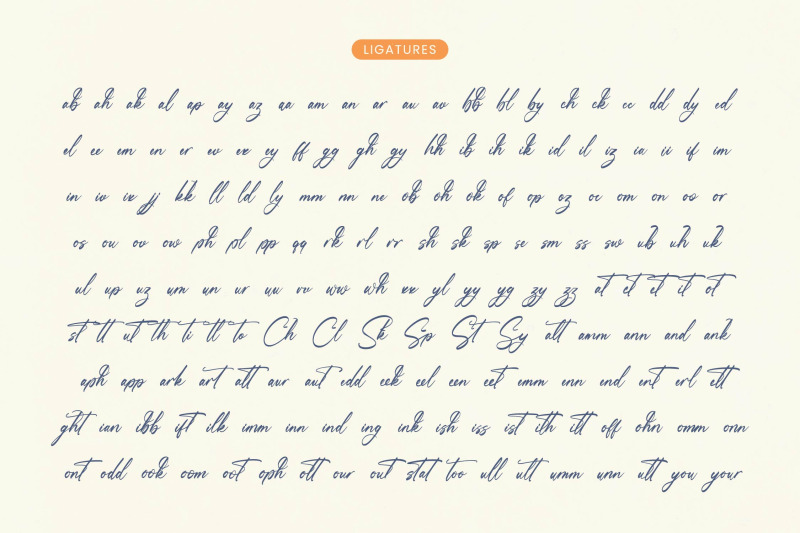 LIGATURES
ab ah ak al ap ay az aa am an ar au av bb bl by ch ck cc dd dy ed
el ee em en er ev ex ey ff gg gh gy hh ib ih ik id il iz ia ii if im
in iv ix jj kk ll ld ly mm nn ne ob oh ok of op oz oc om on oo or
os ou ov ow ph pl pp qq rk rl rr sh sk sp se sm ss sw ub uh uk
ul up uz um un ur uu vv ww wh xx yl yy yg zy zz at ct et it ot
st tt ut th ti tl to Ch Cl Sk Sp St Sy all amm ann and ank
aph app ark art att aur aut edd eek eel een eet emm enn end ent erl ett
ght ian ibb ift ilk imm inn ind ing ink ish iss ist ith itt off ohn omm onn
ont odd ook oom oot oph ott our out stat too ull ult umm unn utt you your